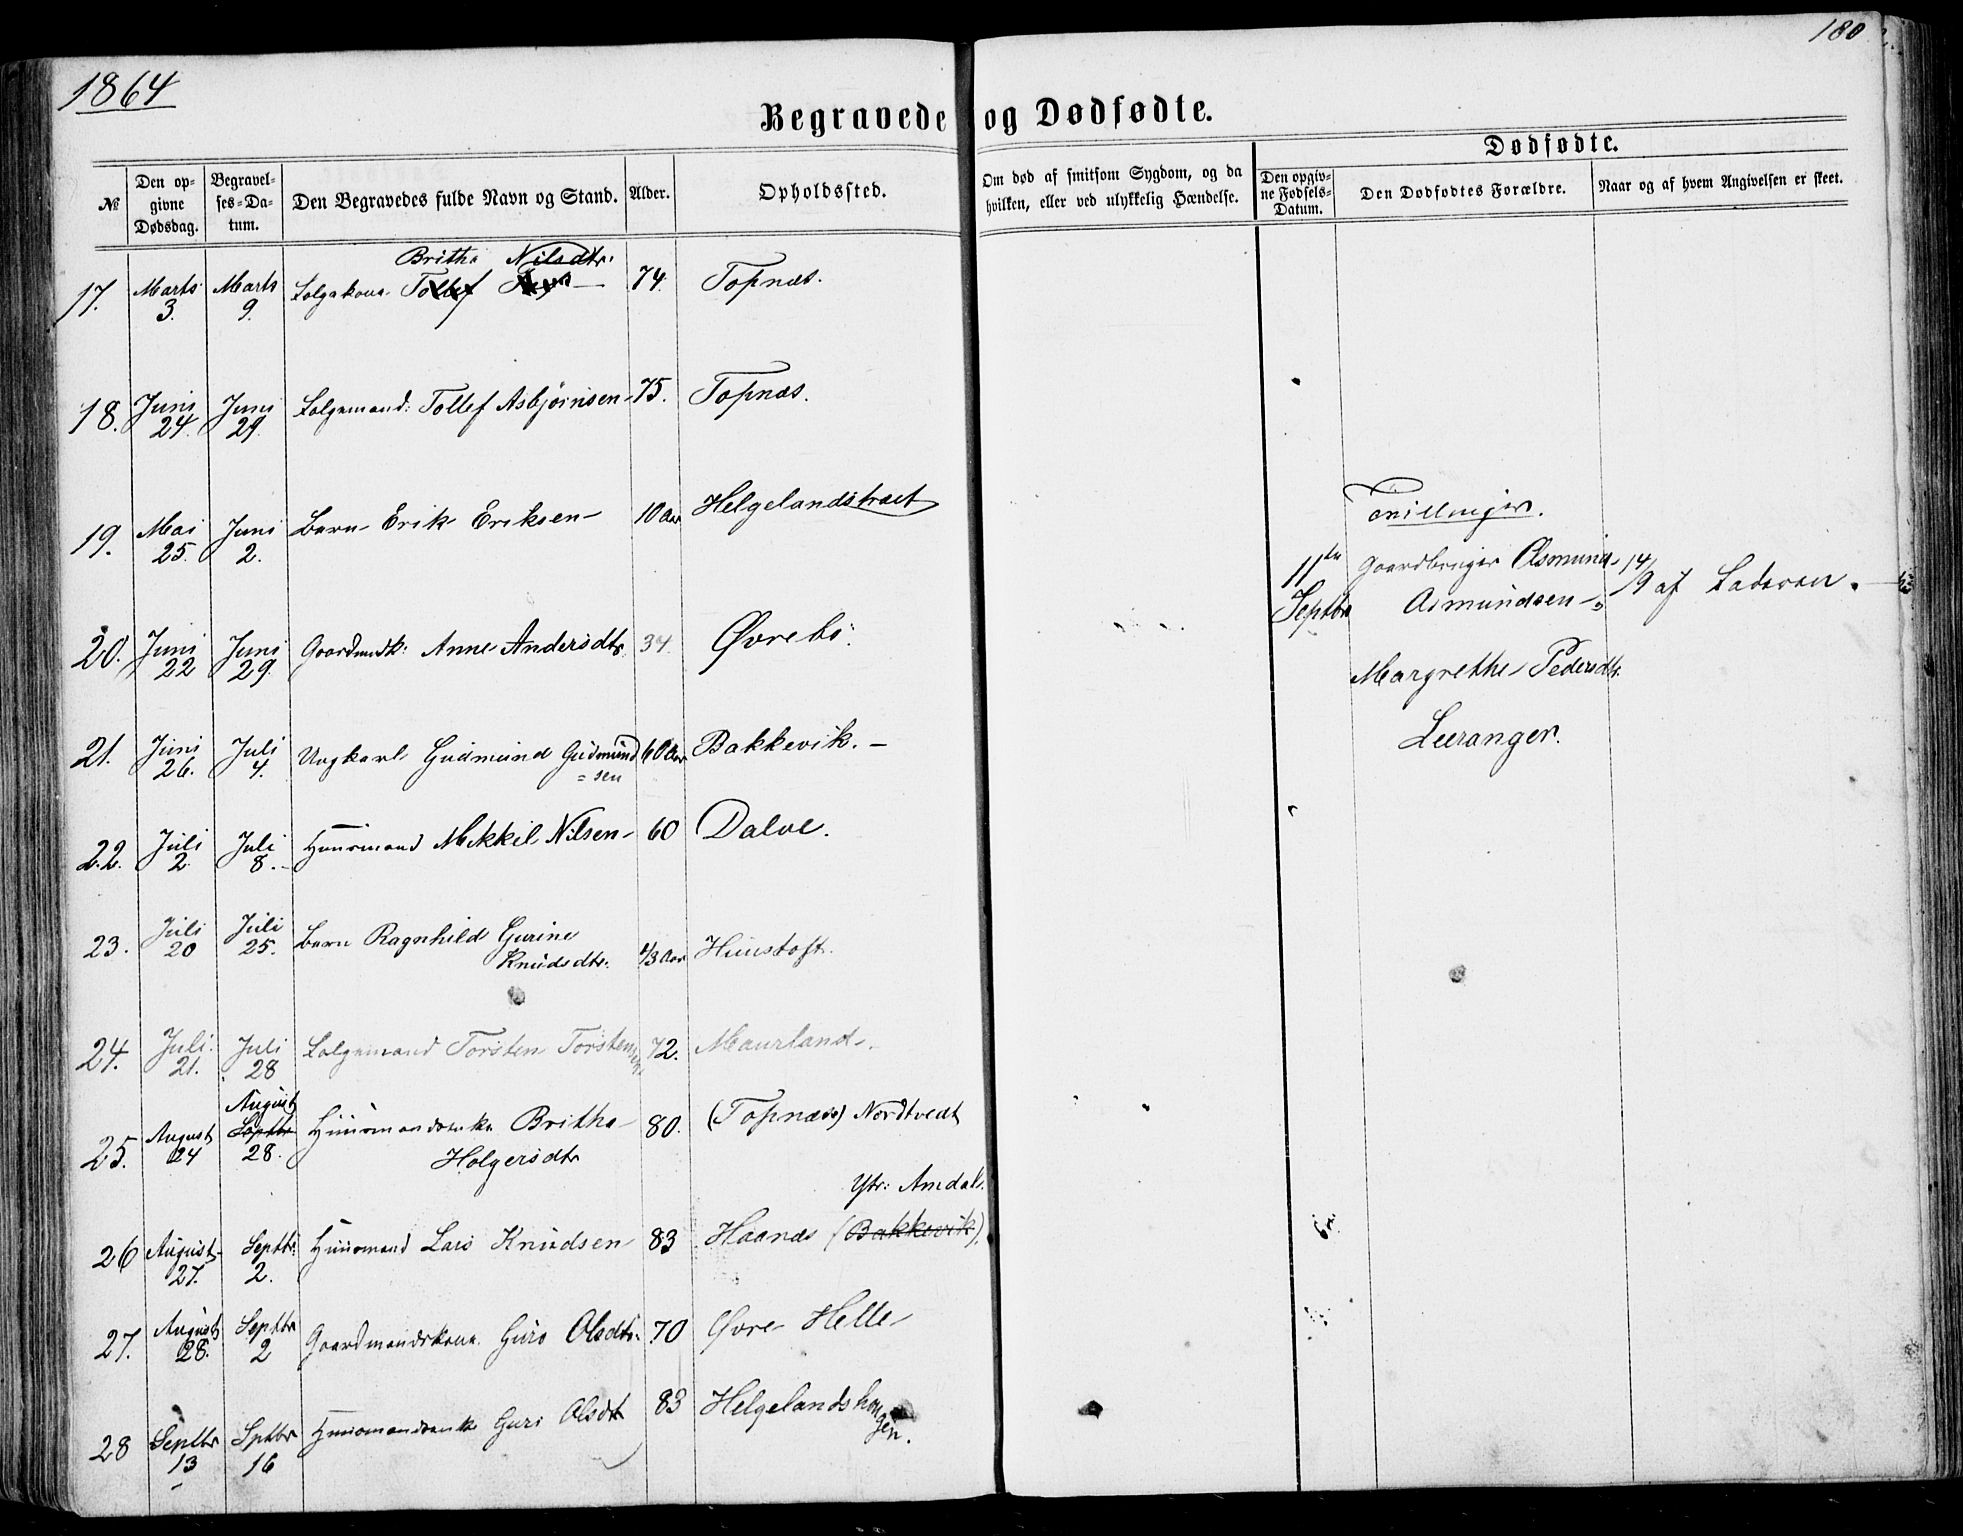 1864
180
Begravede og Dødfødte.
Dødfødte.
№
Den opgivne Dødsdag.
Begravelses-Datum.
Den Begravedes fulde Navn og Stand.
Alder.
Opholdssted.
Om død af smitsom Sygdom, og da hvilken, eller ved ulykkelig Hændelse.
Den opgivne Fødsels-Datum.
Den Dødfødtes Forældre.
Naar og af hvem Angivelsen er skeet.
Britha Nilsdtr.
17. Marts 3. Marts 9. Folgekone Tollef 74. Topnæs.
18. Juni 24. Juni 29. Folgemand: Tollef Asbjørnsen 75. Topnæs.
19. Mai 25. Juni 2. Barn Erik Eriksen 10 Aar Helgelandstræet
20. Juni 22 Juni 29. Gaardmdk: Anne Andersdtr 34 Øvrebø.
21. Juni 26. Juli 4. Ungkarl Gudmund Gudmund=sen 60 Aar Bakkevik.
22. Juli 2. Juli 8. Huusmand Mikkil Nilsen 60 Dalve.
23. Juli 20 Juli 25. Barn Ragnhild Gurine
Knudsdtr. 4/3 Aar Huustoft.
24. Juli 21. Juli 28 Folgemand Torsten Torstensen 72. Maurland
August
25. August 24 Septbr 28. Huusmandsenke Britha 80. (Topnæs) Nordtvedt
Holgersdtr
Ytr: Amdal.
26 August 27. Septbr. 2. Huusmand Lars Knudsen 83 Haanæs (Bakkevik).
27. August 28. Septbr 2 Gaardmandskone Guro Olsdtr. 70 Øvre Helle
28 Septbr 13 Sptbr 16 Huusmandsenke Guri Olsdt 83 Helgelandshaugen.
Tvillinger.
11te Septbr Gaardbruger Asmund 14/9 af Faderen.
Asmundsen
Margrethe Pedersdtr.
Leeranger.